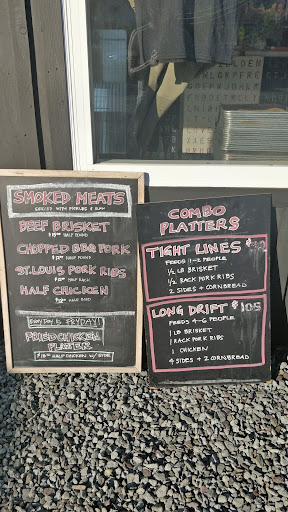 SMOKED MEATS
SERVED WITH PICKLES & SLAW
BEEF BRISKET
HALF POUND
CHOPPED BBQ PORK
HALF POUND
ST. LOUIS PORK RIBS
HALF RACK
HALF CHICKEN
HALF BIRD
EVERY DAY IS FRYDAY!
FRIED CHICKEN
PLATTER
HALF CHICKEN W/ SIDE
COMBO
PLATTERS
TIGHT LINES $
FEEDS 1-2 PEOPLE
½ LB BRISKET
½ RACK PORK RIBS
2 SIDES + CORNBREAD
LONG DRIFT $105
FEEDS 4-6 PEOPLE
1 LB BRISKET
1 RACK PORK RIBS
1 CHICKEN
4 SIDES + 2 CORNBREAD